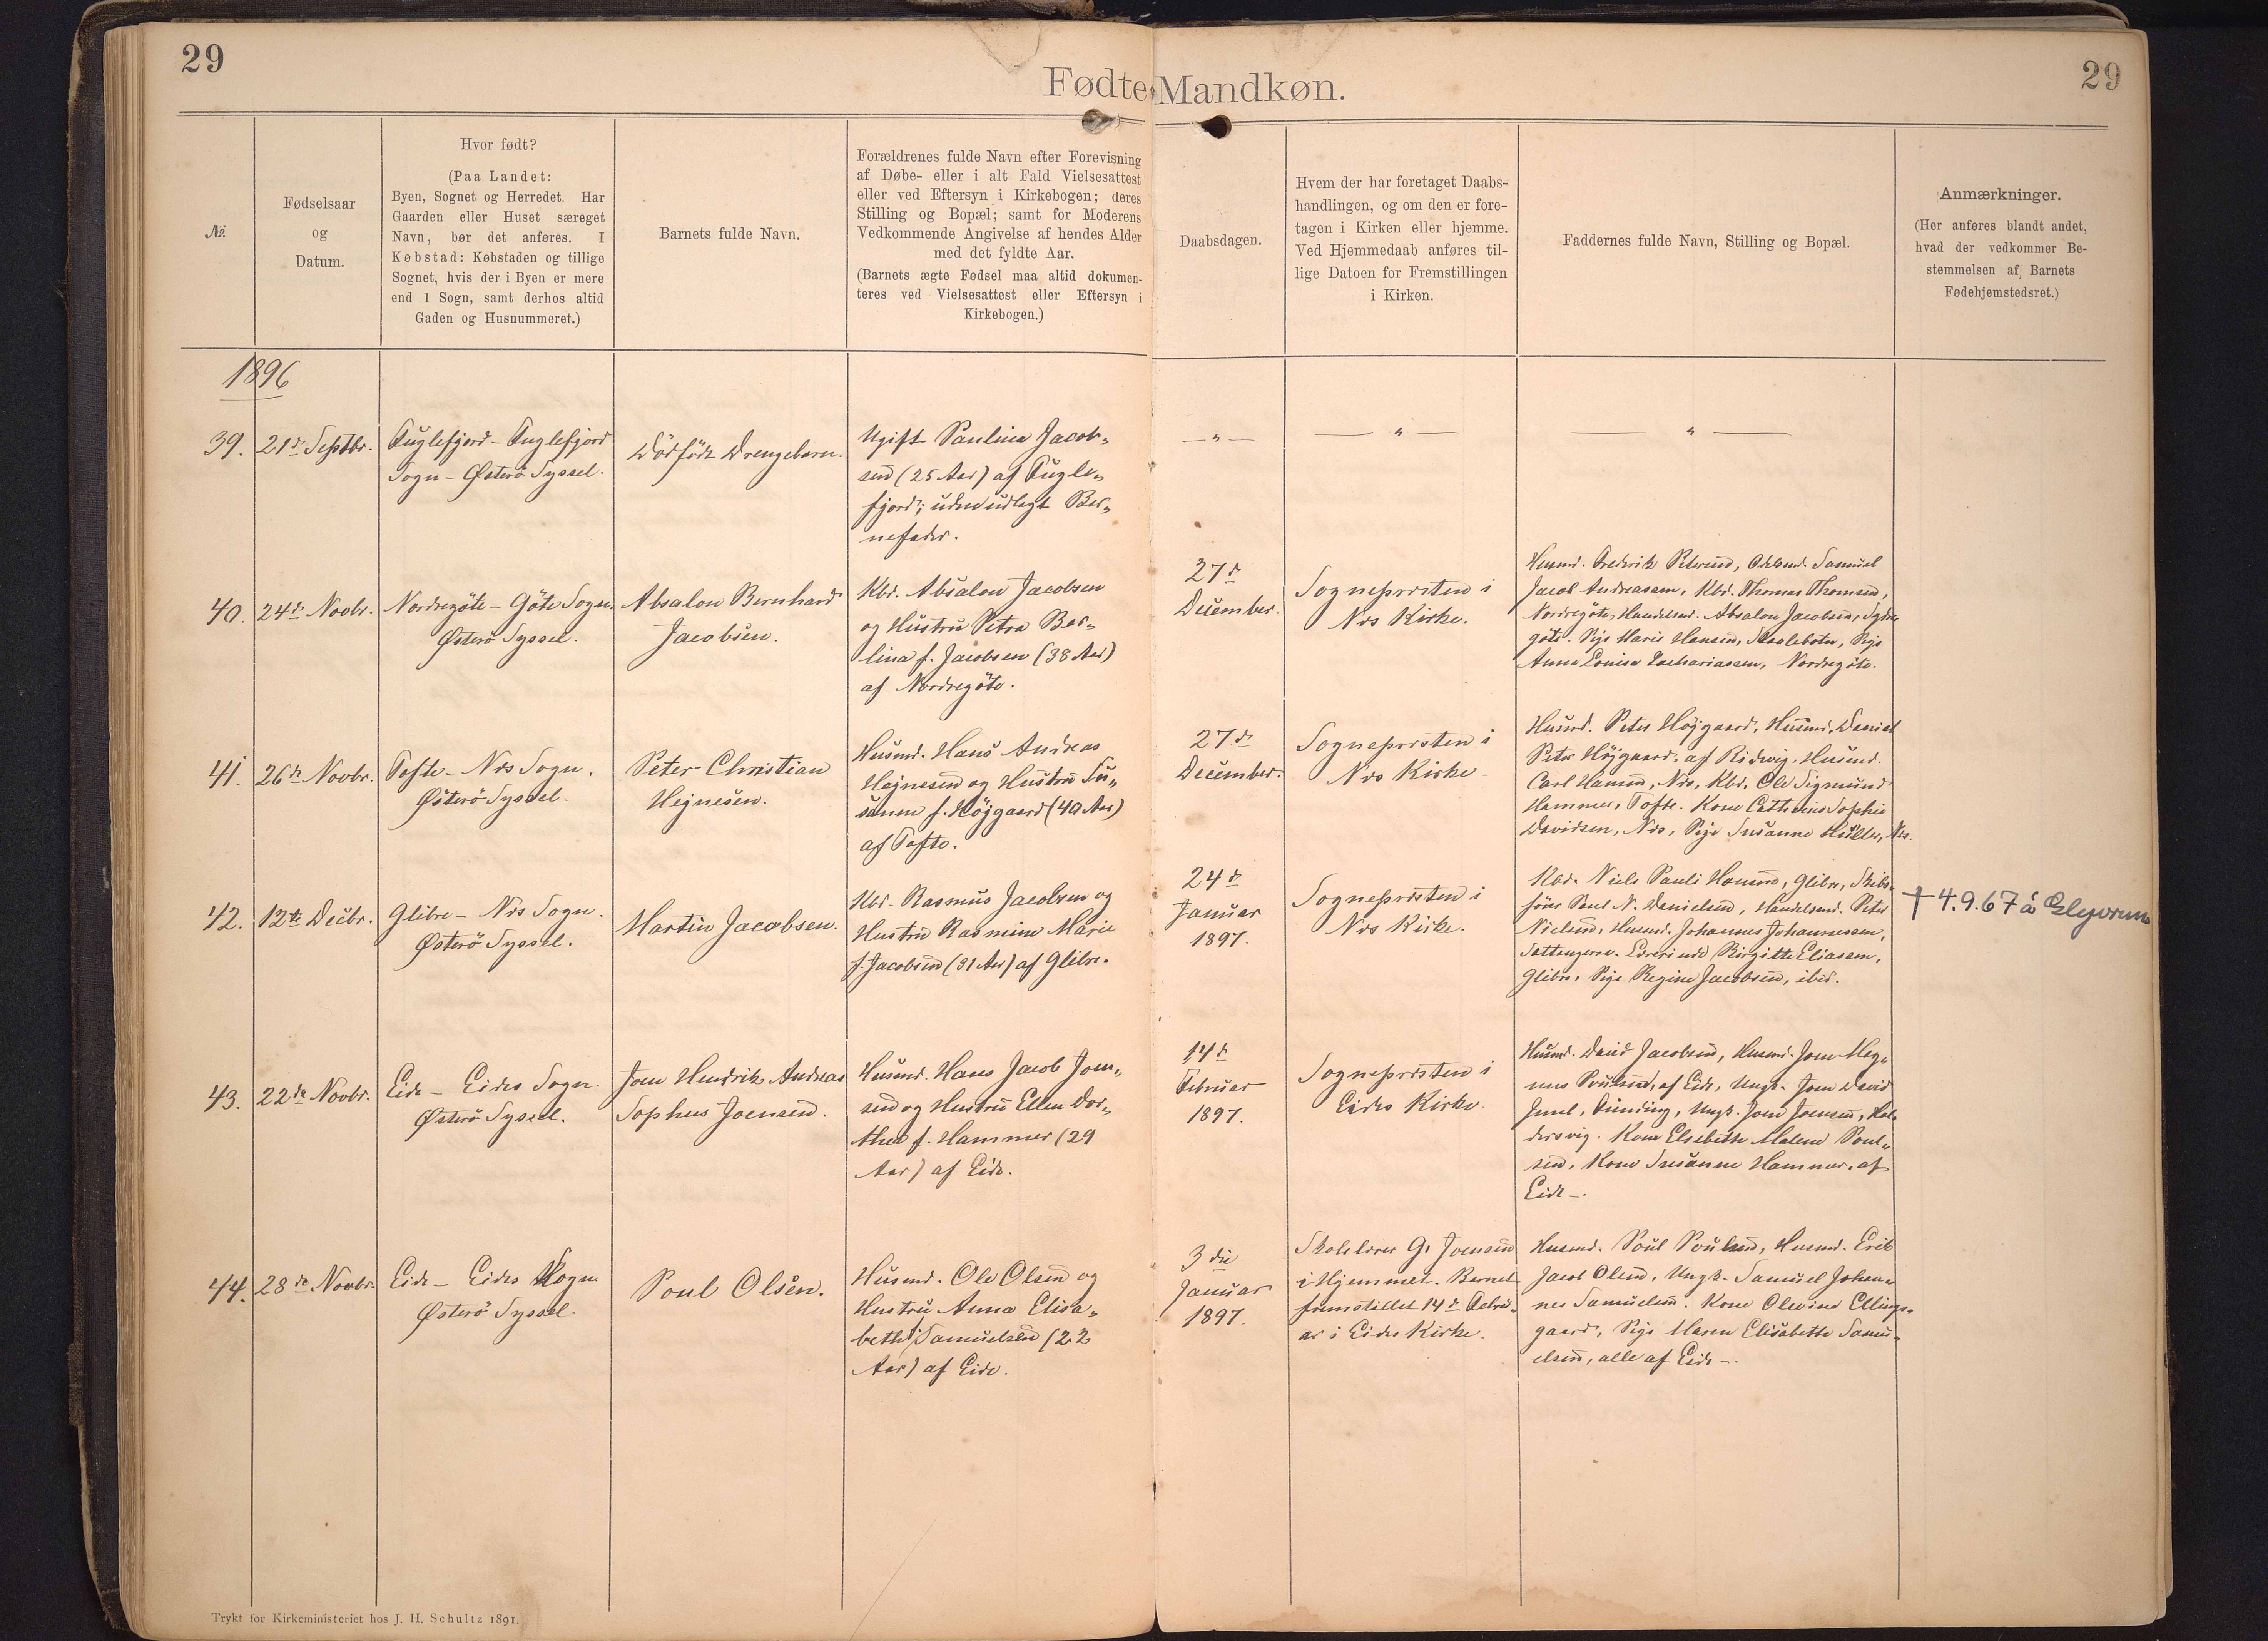 29
29
Fødte Mandkøn.
№.
Fødselsaar
og
Datum.
Hvor født?
(Paa Landet:
Byen, Sognet og Herredet. Har
Gaarden eller Huset særeget
Navn, bør det anføres. I
Købstad: Købstaden og tillige
Sognet, hvis der i Byen er mere
end 1 Sogn, samt derhos altid
Gaden og Husnummeret.)
Barnets fulde Navn.
Forældrenes fulde Navn efter Forevisning
af Døbe- eller i alt Fald Vielsesattest
eller ved Eftersyn i Kirkebogen; deres
Stilling og Bopæl; samt for Moderens
Vedkommende Angivelse af hendes Alder
med det fyldte Aar.
(Barnets ægte Fødsel maa altid dokumen-
teres ved Vielsesattest eller Eftersyn i
Kirkebogen.)
Daabsdagen.
Hvem der har foretaget Daabs-
handlingen, og om den er fore-
tagen i Kirken eller hjemme.
Ved Hjemmedaab anføres til-
lige Datoen for Fremstillingen
i Kirken.
Faddernes fulde Navn, Stilling og Bopæl.
Anmærkninger.
(Her anføres blandt andet,
hvad der vedkommer Be-
stemmelsen af Barnets
Fødehjemstedsret.)
1896
39.
21de Septbr.
Fuglefjord - Fuglefjord
Sogn - Østerö Syssel.
Dödfödt Drengebarn.
Ugift Paulina Jacob-
sen (25 Aar) af Fugle-
fjord; uden udlagt Bar-
nefader.
— " —
— " —
— " —
40.
24de Novbr.
Nordregöte - Göte Sogn.
Østerö Syssel.
Absalon Bernhard
Jacobsen.
Kbd. Absalon Jacobsen
og Hustru Petra Ber-
lina f. Jacobsen (38 Aar)
af Nordregöte.
27de
December.
Sognepræsten i
Næs Kirke.
Husmd. Frederik Petersen, Odelsmd. Samuel
Jacob Andreasen, Kbd. Thomas Thomsen,
Nordregöte, Handelsmd. Absalon Jacobsen, Sydre
göte. Pige Marie Hansen, Skaalebotn, Pige
Anna Louisa Zachariasen, Nordregöte.
41.
26de Novbr.
Tofte - Næs Sogn.
Østerö Syssel.
Peter Christian
Hejnesen.
Husmd. Hans Andreas
Hejnesen og Hustru Su-
sanne f. Höjgaard (40 Aar)
af Tofte.
27de
December.
Sognepræsten i
Næs Kirke.
Husmd. Peter Höjgaard, Husmd. Daniel
Peter Höjgaard, af Ridevig, Husmd.
Carl Hansen, Næs, Kbd. Ole Sigmund
Hammer, Tofte. Kone Cathrine Sophie
Davidsen, Næs, Pige Susanne Müller, Næs.
42.
12te Decbr.
Glibre - Næs Sogn.
Østerö Syssel.
Martin Jacobsen.
Kbd. Rasmus Jacobsen og
Hustru Rasmine Marie
f. Jacobsen (31 Aar) af Glibre.
24de
Januar
1897.
Sognepræsten i
Næs Kirke.
Kbd. Niels Pauli Hansen, Glibre, Skibs-
förer Poul N. Danielsen, Handelsmd. Peter
Nielsen, Husmd. Johannes Johannesen,
Saltangerne. Lærerinde Birgitte Eliasen,
Glibre, Pige Regine Jacobsen, ibid.
† 4.9.67 á Glyvrum
43.
22de Novbr.
Eide - Eides Sogn.
Østerö Syssel.
Joen Hendrik Andreas
Sophus Joensen.
Husmd. Hans Jacob Joen-
sen og Hustru Ellen Dor-
thea f. Hammer (29
Aar) af Eide.
14de
Februar
1897.
Sognepræsten i
Eides Kirke.
Husmd. David Jacobsen, Husmd. Joen Mag-
nus Poulsen, af Eide, Ungk. Joen David
Juul, Funding, Ungk. Joen Joensen, Hal-
dersvig. Kone Elsebeth Malene Poul-
sen, Kone Susanne Hammer, af
Eide -.
44.
28de Novbr.
Eide - Eides Sogn
Østerö Syssel.
Poul Olsen.
Husmd. Ole Olsen og
Hustru Anna Elisa-
beth f. Samuelsen (22
Aar) af Eide.
3die
Januar
1897.
Skolelærer G. Joensen
i Hjemmet. Barnet
fremstillet 14de Febru-
ar i Eides Kirke.
Husmd. Poul Poulsen, Husmd. Erik
Jacob Olsen, Ungk. Samuel Johan-
nes Samuelsen. Kone Olevine Ellings-
gaard, Pige Maren Elisabeth Samu-
elsen, alle af Eide -.
Trykt for Kirkeministeriet hos J. H. Schultz 1891.